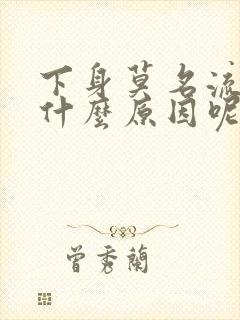 下身莫名流
什麼原因呢
曾秀蘭